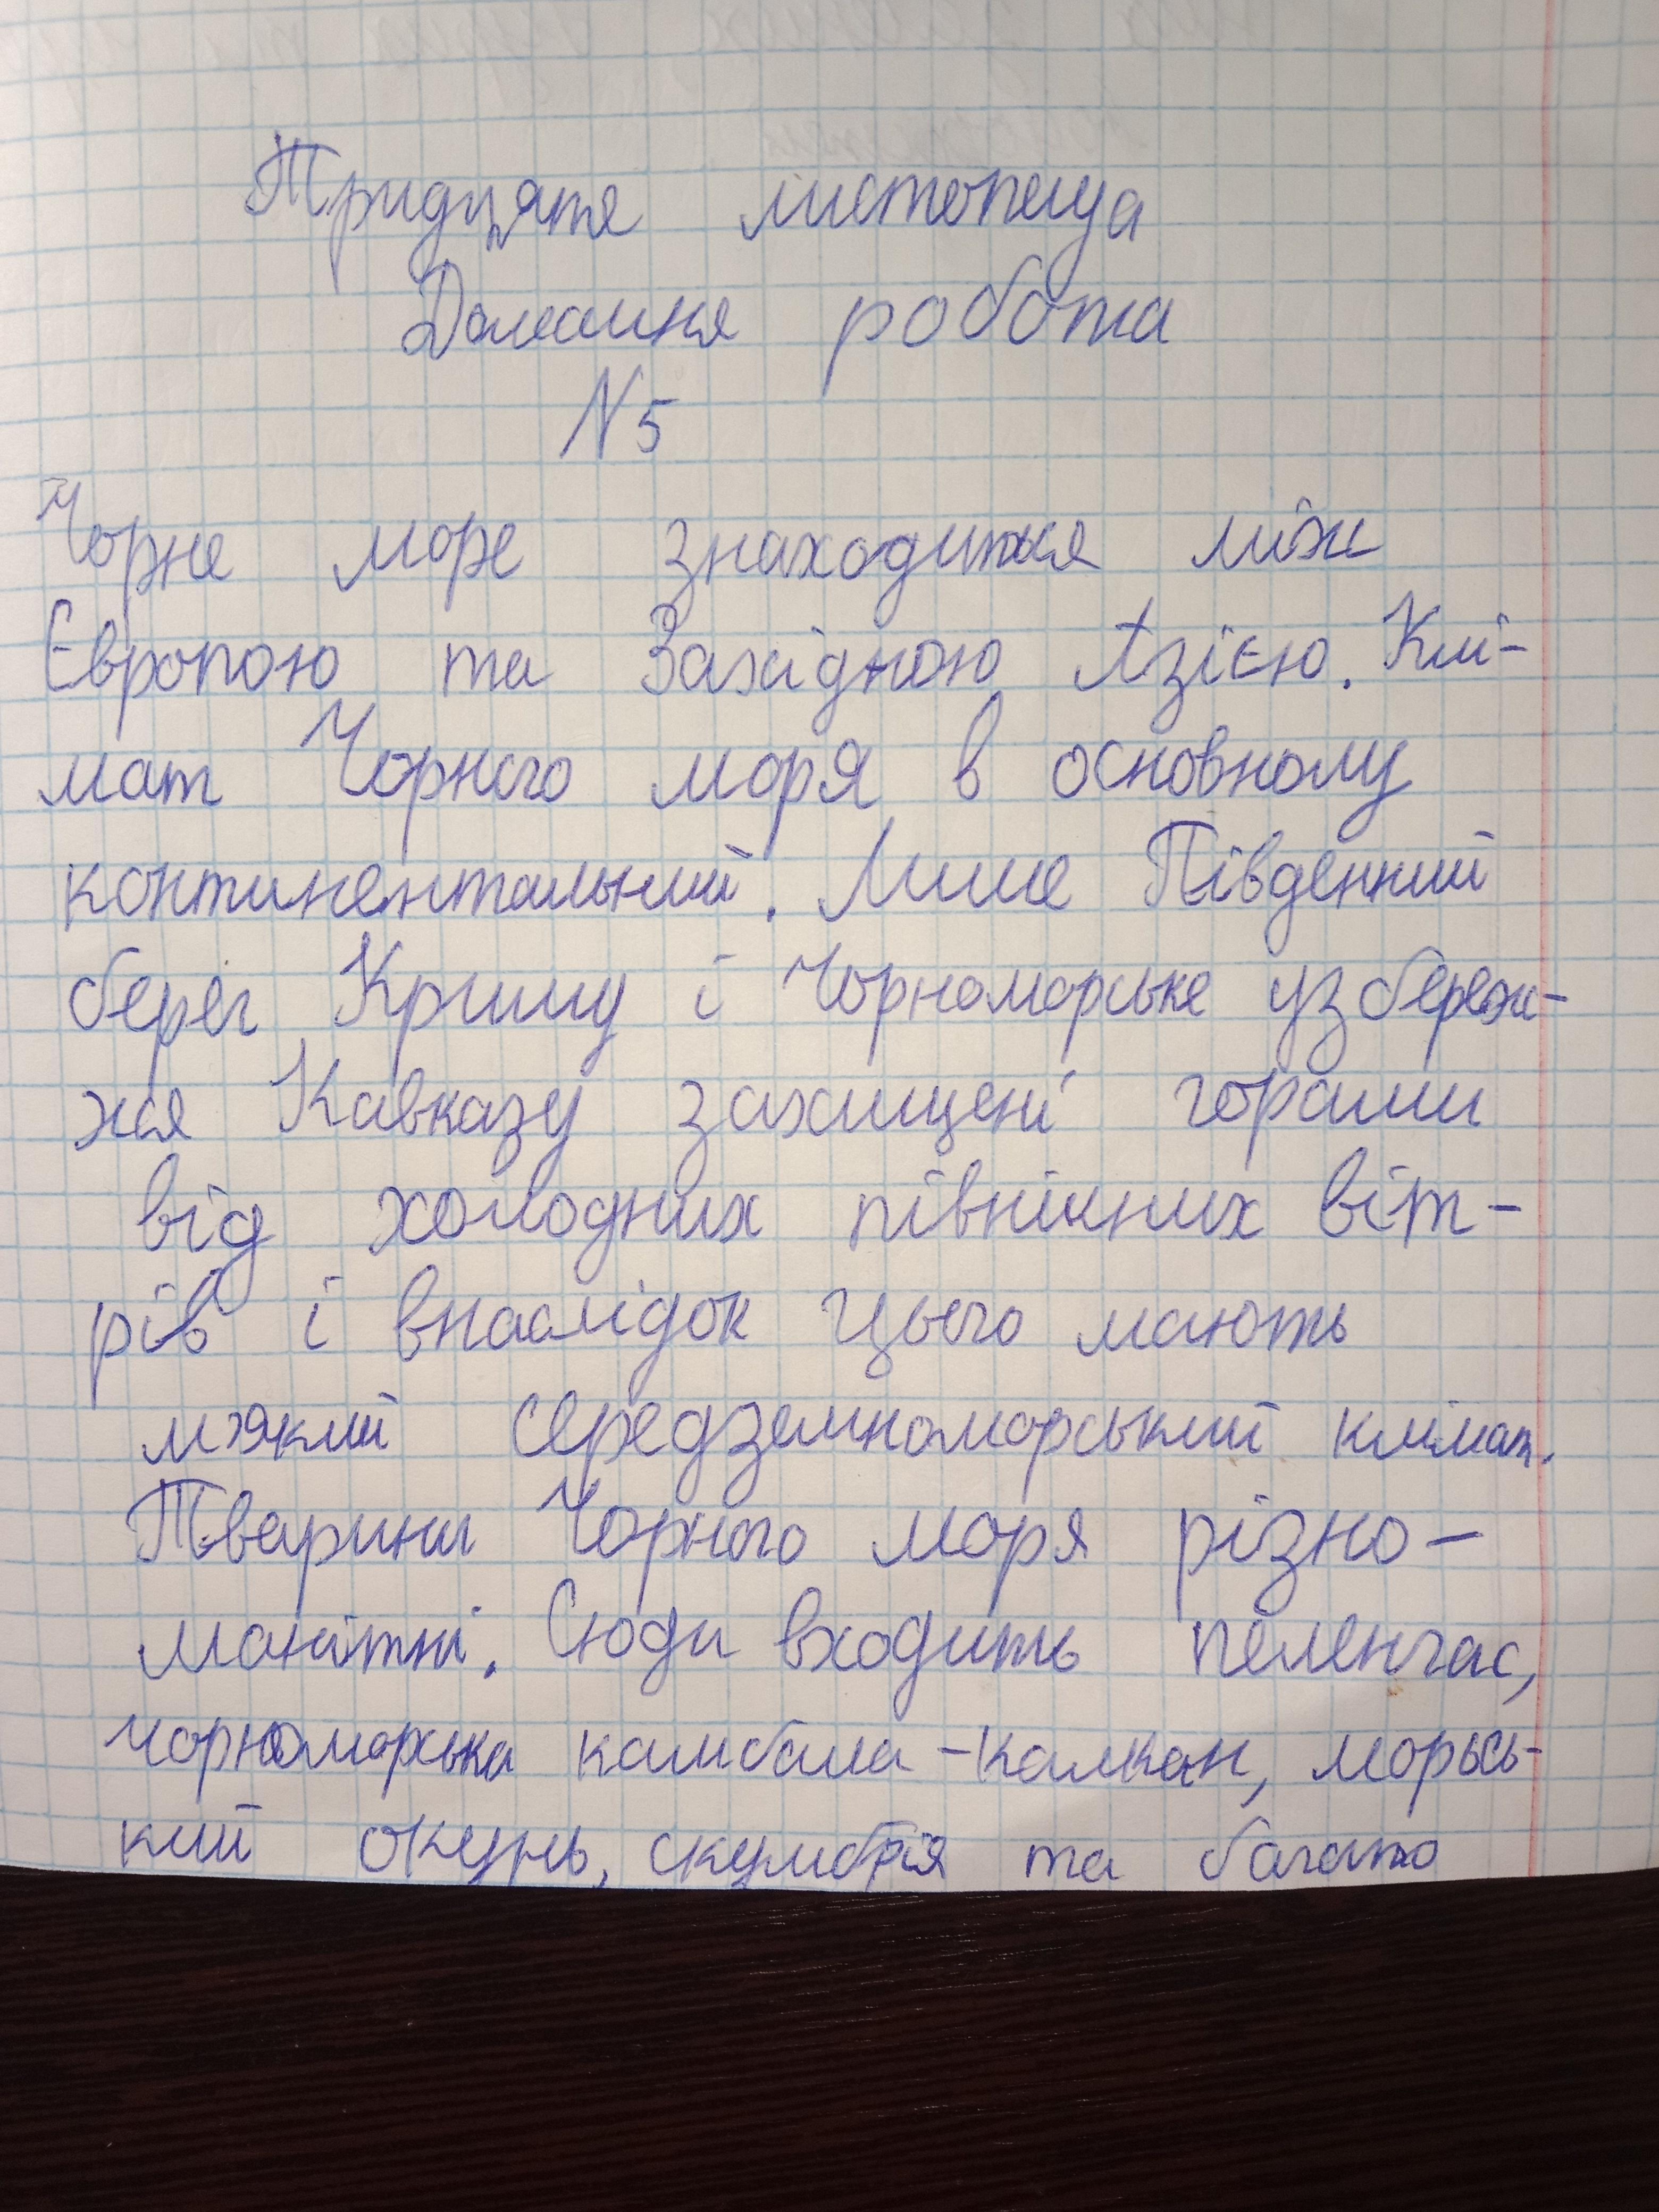 Тридцяте листопада
Домашня робота
N 5
Чорне море знаходиться між
Європою та Західною Азією. Клі-
мат Чорного моря в основному
континентальний. Лише Південний
берег Криму і Чорноморське узбереж-
жя Кавказу захищені горами
від холодних північних віт-
рів і внаслідок цього мають
м'який середземноморський клімат.
Тварини Чорного моря різно-
манітні. Сюди входить пеленгас,
чорноморська камбала-калкан, морьсь-
кий окунь, скумбрія та багато